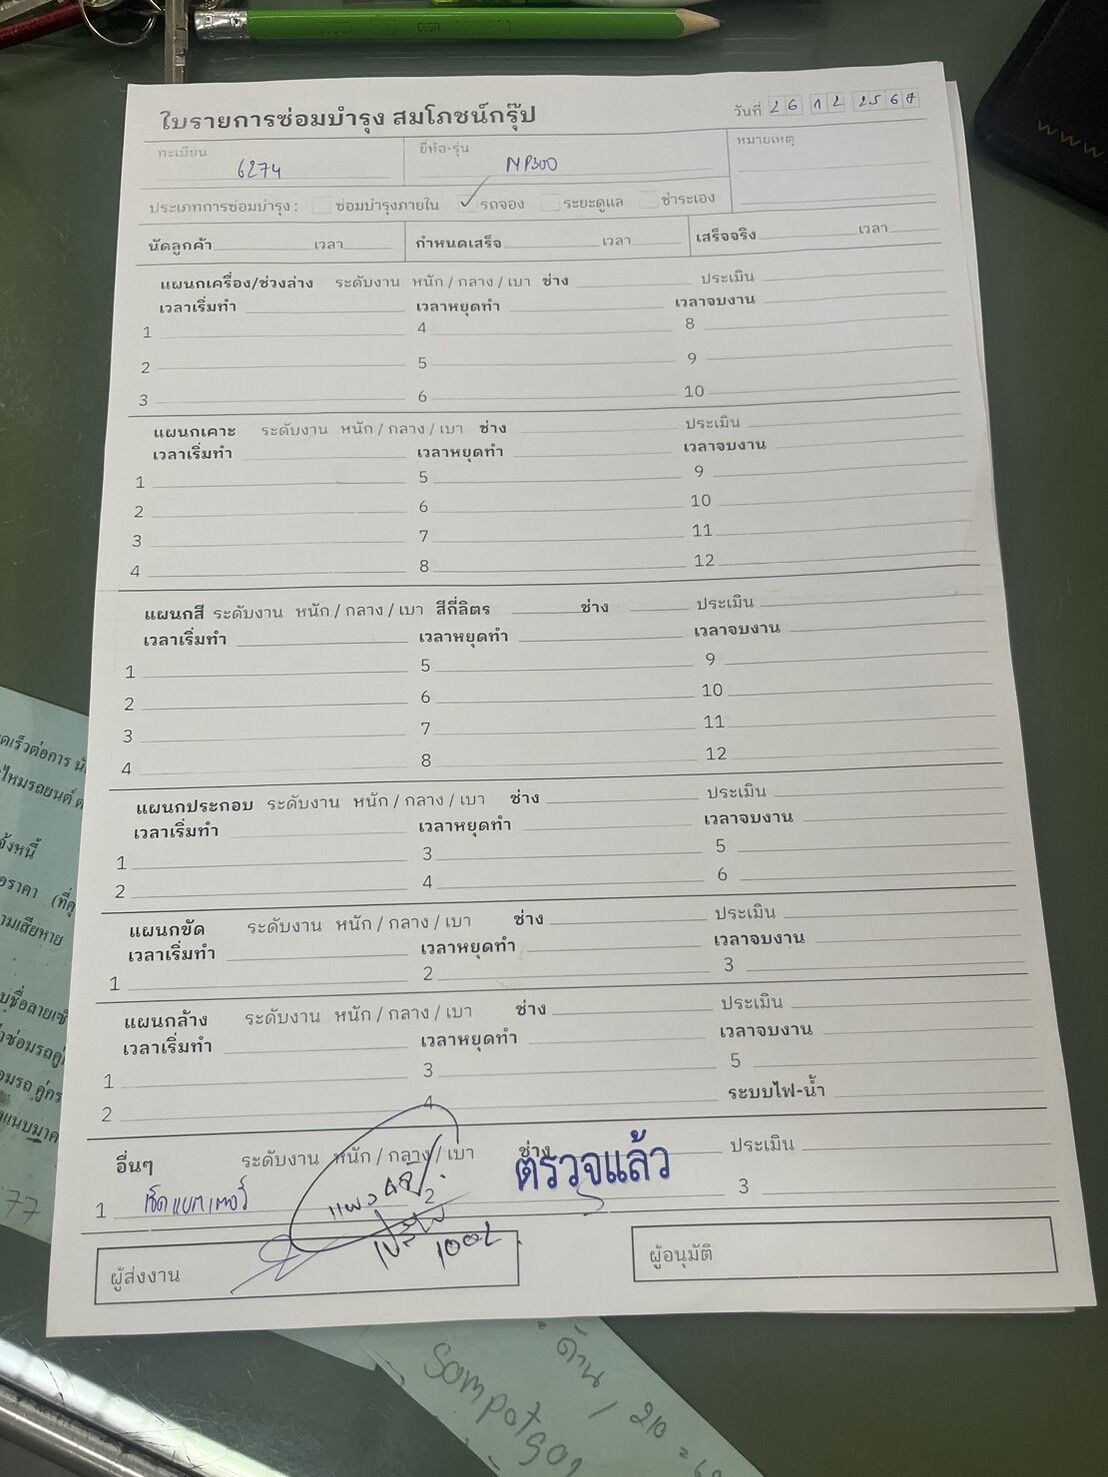 ใบรายการซ่อมบำรุง สมโภชน์กรุ๊ป
วันที่ 26 12 2567
ทะเบียน 6274 ยี่ห้อ-รุ่น NP300 หมายเหตุ
ประเภทการซ่อมบำรุง : ซ่อมบำรุงภายใน ✓ รถจอง ระยะดูแล ชำระเอง
นัดลูกค้า เวลา กำหนดเสร็จ เวลา เสร็จจริง เวลา
แผนกเครื่อง/ช่วงล่าง ระดับงาน หนัก / กลาง / เบา ช่าง ประเมิน
เวลาเริ่มทำ เวลาหยุดทำ เวลาจบงาน
1 4 8
2 5 9
3 6 10
แผนกเคาะ ระดับงาน หนัก / กลาง / เบา ช่าง ประเมิน
เวลาเริ่มทำ เวลาหยุดทำ เวลาจบงาน
1 5 9
2 6 10
3 7 11
4 8 12
แผนกสี ระดับงาน หนัก / กลาง / เบา สีกี่ลิตร ช่าง ประเมิน
เวลาเริ่มทำ เวลาหยุดทำ เวลาจบงาน
1 5 9
2 6 10
3 7 11
4 8 12
แผนกประกอบ ระดับงาน หนัก / กลาง / เบา ช่าง ประเมิน
เวลาเริ่มทำ เวลาหยุดทำ เวลาจบงาน
1 3 5
2 4 6
แผนกขัด ระดับงาน หนัก / กลาง / เบา ช่าง ประเมิน
เวลาเริ่มทำ เวลาหยุดทำ เวลาจบงาน
1 2 3
แผนกล้าง ระดับงาน หนัก / กลาง / เบา ช่าง ประเมิน
เวลาเริ่มทำ เวลาหยุดทำ เวลาจบงาน
1 3 5
2 4 ระบบไฟ-น้ำ
อื่นๆ ระดับงาน หนัก / กลาง / เบา ช่าง ประเมิน
ตรวจแล้ว
1 เช็คแบตเตอรี่ 2 3
100%
ผู้ส่งงาน ผู้อนุมัติ
ไหมรถยนต์
จ้งหนี้
อราคา
ามเสียหาย
77
Sompot
ด้าน / 210 =